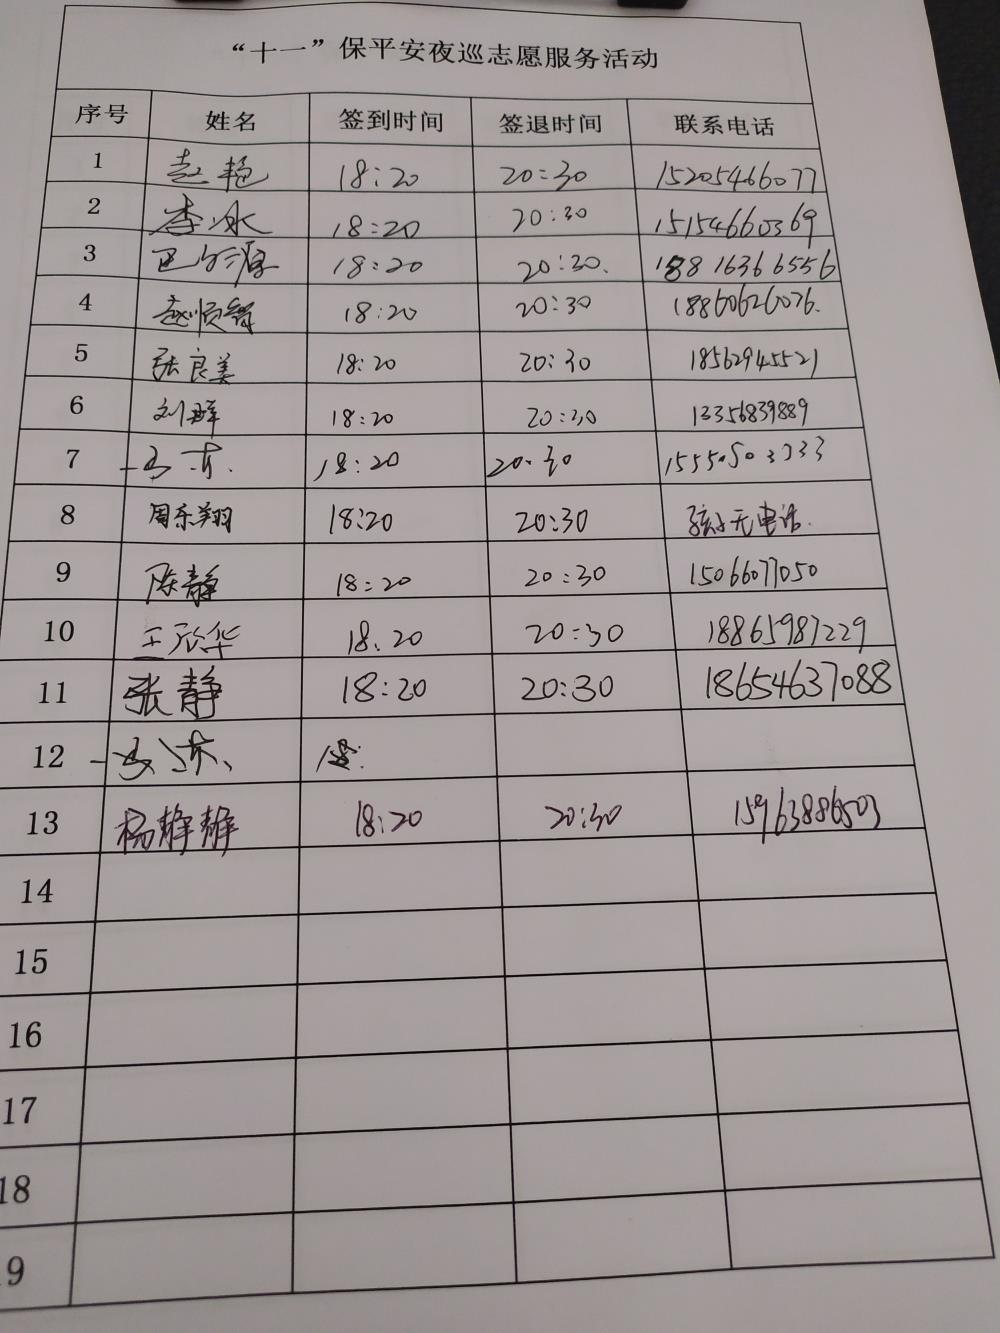 “十一”保平安夜巡志愿服务活动
序号 姓名 签到时间 签退时间 联系电话
1 赵艳 18:20 20:30 15205466077
2 李冰 18:20 20:30 15154660369
3 18:20 20:30. 18816366556
4 赵顺 18:20 20:30 18860626076.
5 张良美 18:20 20:30 18562945521
6 刘群 18:20 20:30 13356839889
7 18:20 20:30
8 周东翔 18:20 20:30 孩子无电话.
9 陈静 18:20 20:30 15066077050
10 王欣华 18.20 20:30 18865987229
11 张静 18:20 20:30 18654637088
12
13 杨静静 18:20 20:30 15963886503
14
15
16
17
18
19